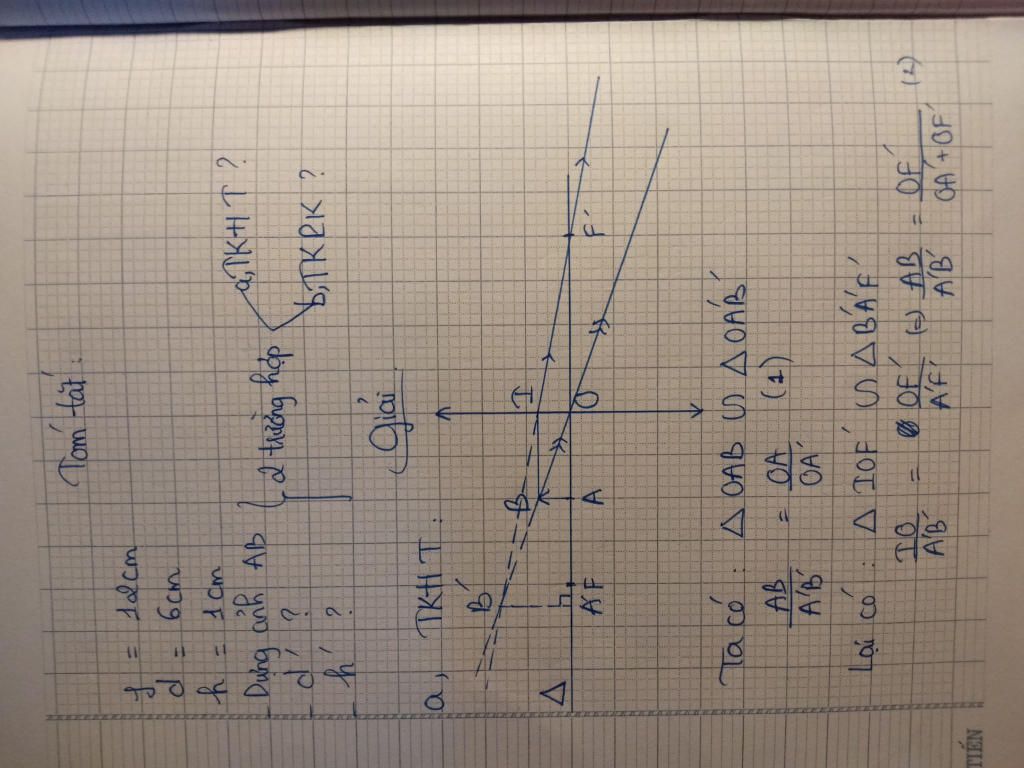 Tóm tắt:
f = 12cm
d = 6cm
h = 1cm
Dựng ảnh AB { 2 trường hợp
a, TKHT ?
b, TKPK ?
d' ?
h' ?
Giải
a, TKHT :
B' B I
Δ A' F A O F'
Ta có : Δ OAB ᔕ Δ OA'B'
AB/A'B' = OA/OA' (1)
Lại có : Δ IOF' ᔕ Δ B'A'F'
IO/A'B' = OF'/A'F' (=) AB/A'B' = OF'/OA'+OF' (2)
TIẾN